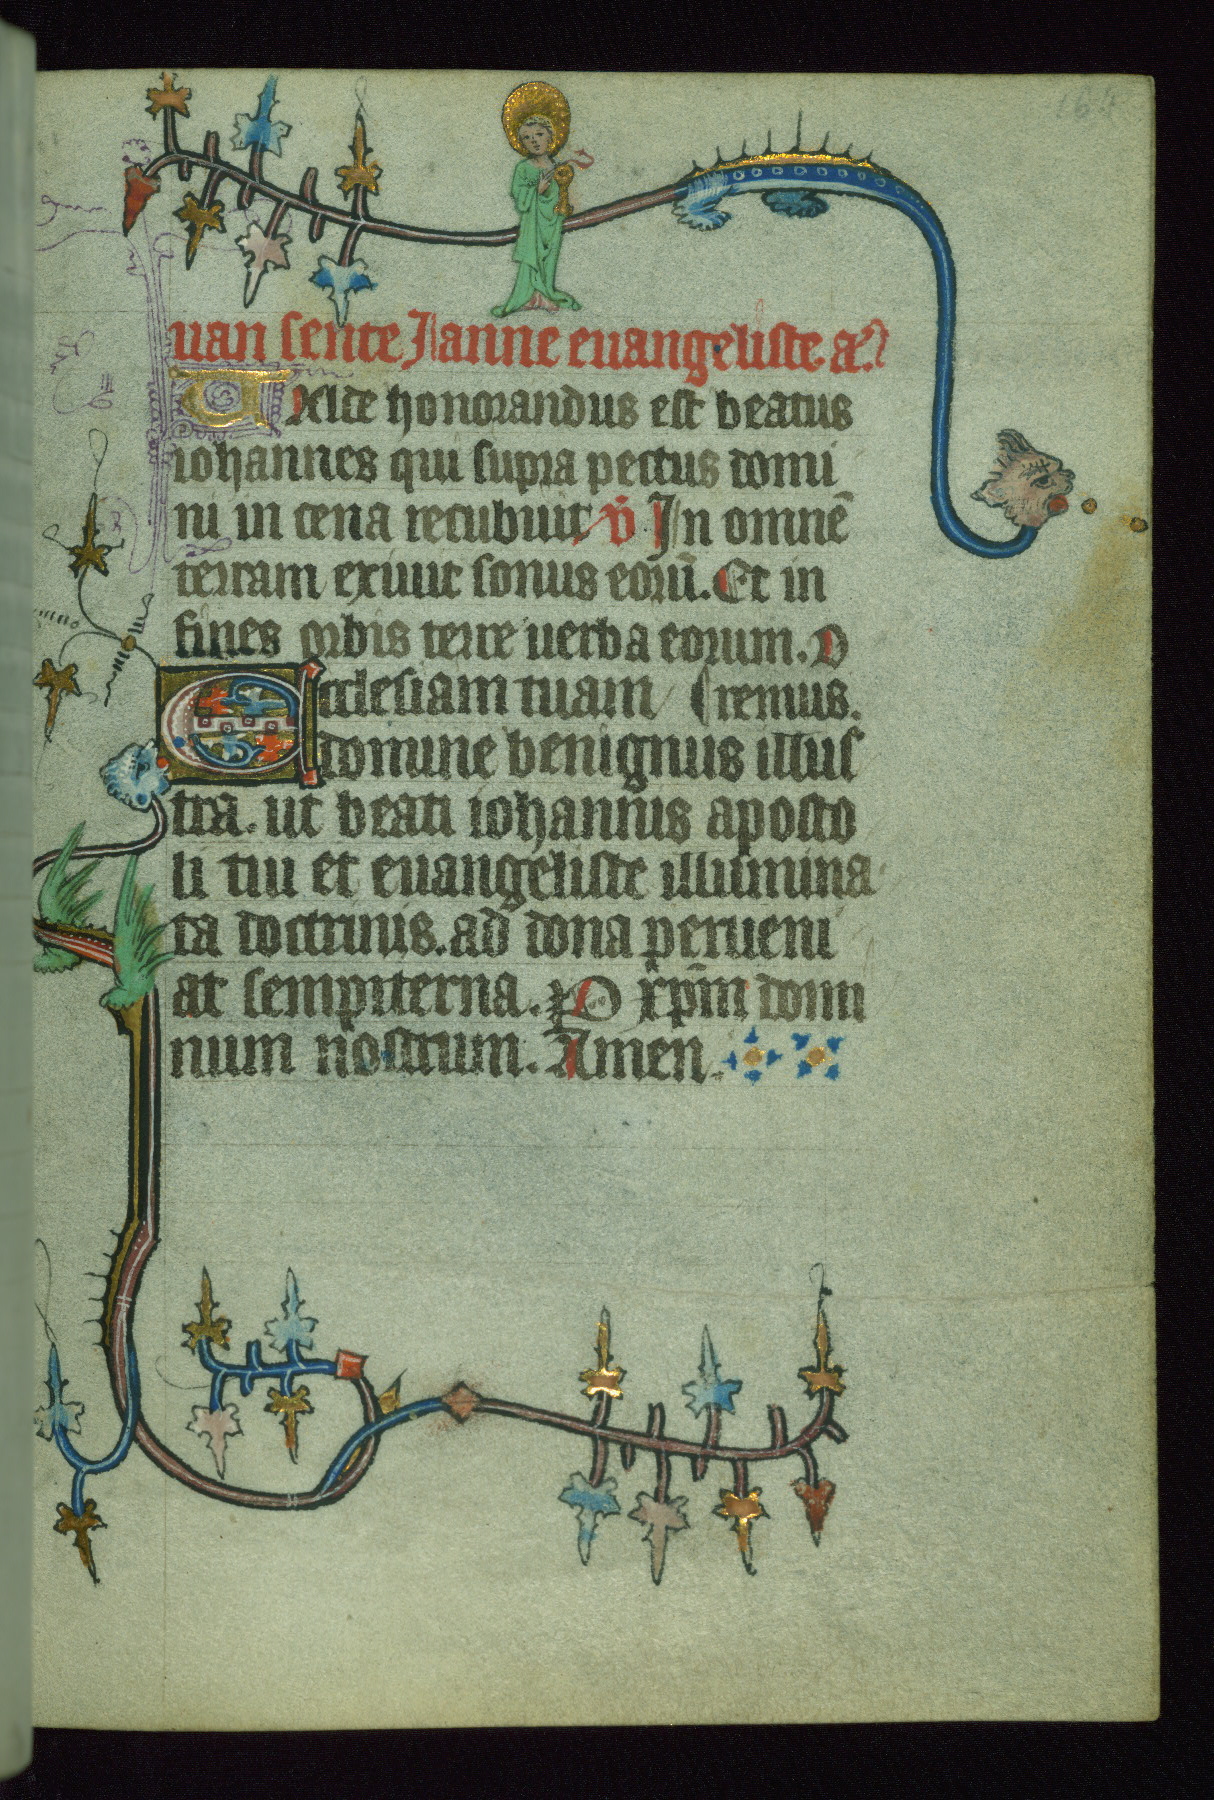 uan sente Janne euangeliste añ
Ualde honorandus est beatus
iohannes qui supra pectus domi
ni in cena recubuit v̄ In omnē
terram exiuit sonus eorū. Et in
fines orbis terre uerba eorum. O
Ecclesiam tuam remus.
domine benignus illus
tra. ut beati iohannis aposto
li tui et euangeliste illumina
ta doctrinis. ad dona perueni
at sempiterna. P xp̄m domi
num nostrum. Amen.